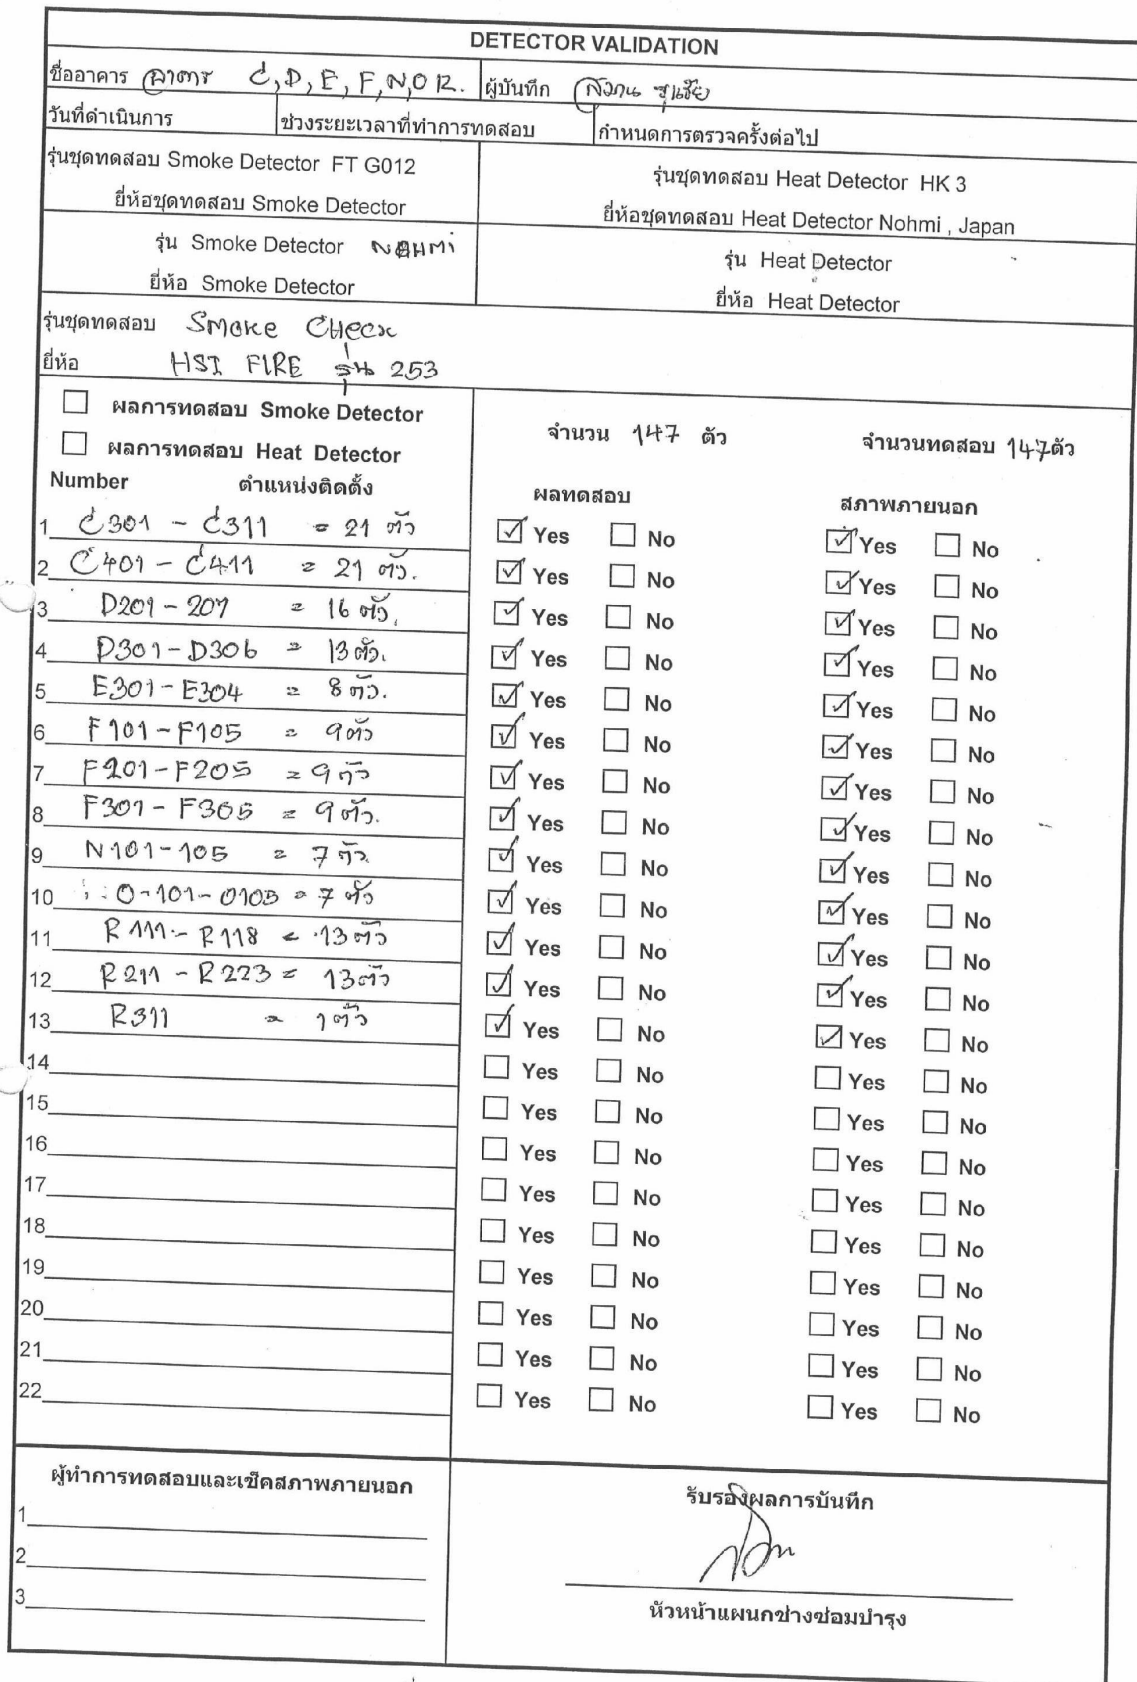 DETECTOR VALIDATION
ชื่ออาคาร อาคาร C, D, E, F, N, O R. ผู้บันทึก
วันที่ดำเนินการ ช่วงระยะเวลาที่ทำการทดสอบ กำหนดการตรวจครั้งต่อไป
รุ่นชุดทดสอบ Smoke Detector FT G012 รุ่นชุดทดสอบ Heat Detector HK 3
ยี่ห้อชุดทดสอบ Smoke Detector ยี่ห้อชุดทดสอบ Heat Detector Nohmi , Japan
รุ่น Smoke Detector NOHMI รุ่น Heat Detector
ยี่ห้อ Smoke Detector ยี่ห้อ Heat Detector
รุ่นชุดทดสอบ Smoke Check
ยี่ห้อ HSI FIRE รุ่น 253
ผลการทดสอบ Smoke Detector จำนวน 147 ตัว จำนวนทดสอบ 147 ตัว
ผลการทดสอบ Heat Detector
Number ตำแหน่งติดตั้ง ผลทดสอบ สภาพภายนอก
1 C301 - C311 = 21 ตัว Yes No Yes No
2 C401 - C411 = 21 ตัว. Yes No Yes No
3 D201 - 207 = 16 ตัว. Yes No Yes No
4 D301 - D306 = 13 ตัว. Yes No Yes No
5 E301 - E304 = 8 ตัว. Yes No Yes No
6 F101 - F105 = 9 ตัว Yes No Yes No
7 F201 - F205 = 9 ตัว Yes No Yes No
8 F301 - F305 = 9 ตัว. Yes No Yes No
9 N101 - 105 = 7 ตัว. Yes No Yes No
10 O-101 - O105 = 7 ตัว Yes No Yes No
11 R111 - R118 = 13 ตัว Yes No Yes No
12 R211 - R223 = 13 ตัว Yes No Yes No
13 R311 = 1 ตัว Yes No Yes No
14 Yes No Yes No
15 Yes No Yes No
16 Yes No Yes No
17 Yes No Yes No
18 Yes No Yes No
19 Yes No Yes No
20 Yes No Yes No
21 Yes No Yes No
22 Yes No Yes No
ผู้ทำการทดสอบและเช็คสภาพภายนอก รับรองผลการบันทึก
1
2
3
หัวหน้าแผนกช่างซ่อมบำรุง